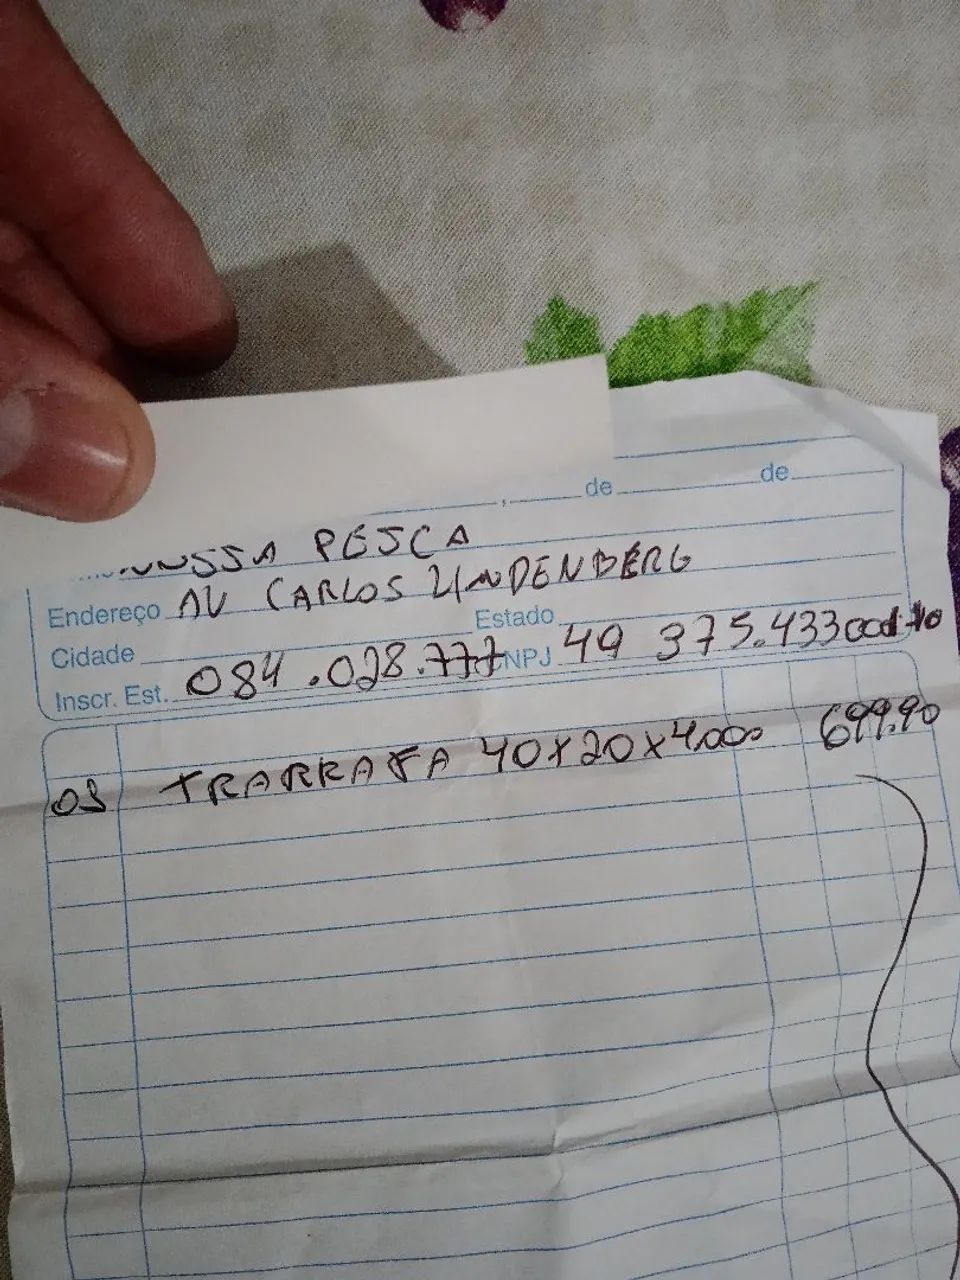 , de de
PESCA
Endereço AV CARLOS LINDENBERG
Cidade Estado
Inscr. Est. 084.028.777 NPJ 49 375.433
TRARRAFA 40X20X4.000 699.90